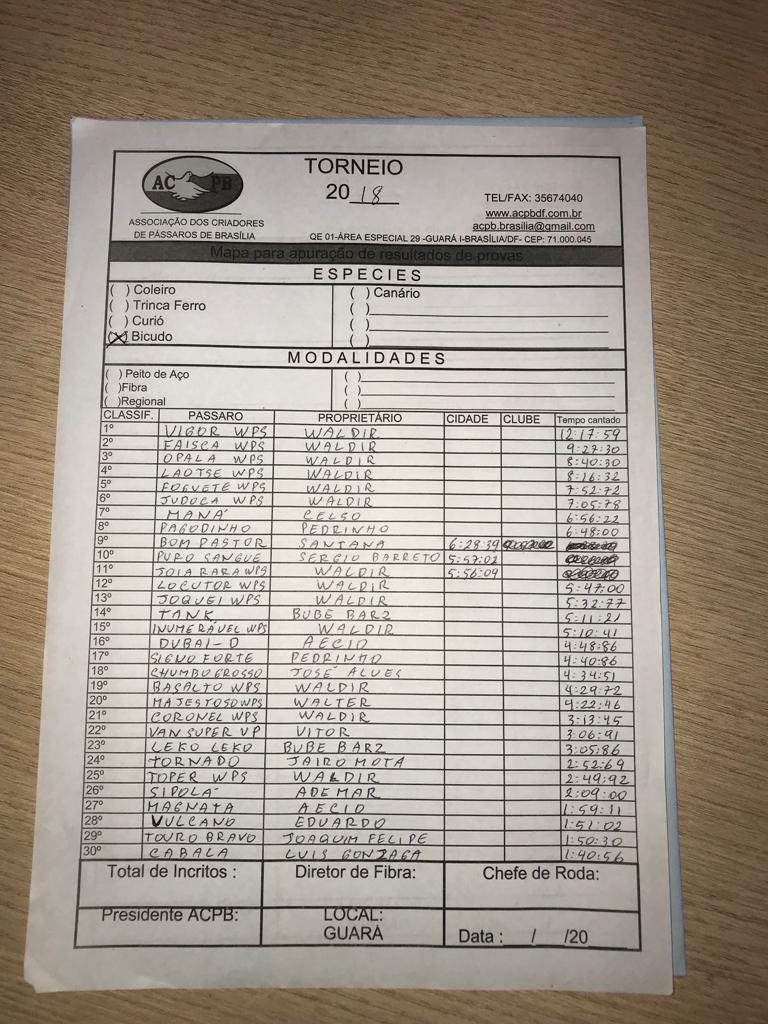 AC PB
ASSOCIAÇÃO DOS CRIADORES
DE PÁSSAROS DE BRASÍLIA
TORNEIO
2018
TEL/FAX: 35674040
www.acpbdf.com.br
acpb.brasilia@gmail.com
QE 01-ÁREA ESPECIAL 29 -GUARÁ I-BRASÍLIA/DF- CEP: 71.000.045
Mapa para apuração de resultados de provas
ESPECIES
( ) Coleiro ( ) Canário
( ) Trinca Ferro ( )
( ) Curió ( )
(X) Bicudo ( )
MODALIDADES
( ) Peito de Aço ( )
( )Fibra ( )
( )Regional ( )
CLASSIF. PASSARO PROPRIETÁRIO CIDADE CLUBE Tempo cantado
1º VIGOR WPS WALDIR 12:17:59
2º FAISCA WPS WALDIR 9:27:30
3º OPALA WPS WALDIR 8:40:30
4º LAOTSE WPS WALDIR 8:16:32
5º FOGUETE WPS WALDIR 7:52:72
6º JUDOCA WPS WALDIR 7:05:78
7º MANÁ CELSO 6:56:22
8º PAGODINHO PEDRINHO 6:48:00
9º BOM PASTOR SANTANA 6:28:39
10º PURO SANGUE SERGIO BARRETO 5:57:02
11º JOIA RARA WPS WALDIR 5:56:09
12º LOCUTOR WPS WALDIR 5:47:00
13º JOQUEI WPS WALDIR 5:32:77
14º TANK BUBE BARZ 5:11:21
15º INUMERÁVEL WPS WALDIR 5:10:41
16º DUBAI-D AECIO 4:48:86
17º SIGNO FORTE PEDRINHO 4:40:86
18º CHUMBO GROSSO JOSÉ ALVES 4:34:51
19º BASALTO WPS WALDIR 4:29:72
20º MAJESTOSO WPS WALTER 4:22:46
21º CORONEL WPS WALDIR 3:13:45
22º VAN SUPER VP VITOR 3:06:91
23º LEKO LEKO BUBE BARZ 3:05:86
24º TORNADO JAIRO MOTA 2:52:69
25º TOPER WPS WALDIR 2:49:92
26º SIPOLÁ ADEMAR 2:09:00
27º MAGNATA AECIO 1:59:11
28º VULCANO EDUARDO 1:51:02
29º TOURO BRAVO JOAQUIM FELIPE 1:50:30
30º CABALA LUIS GONZAGA 1:40:56
Total de Incritos : Diretor de Fibra: Chefe de Roda:
Presidente ACPB: LOCAL:
GUARÁ
Data : / /20